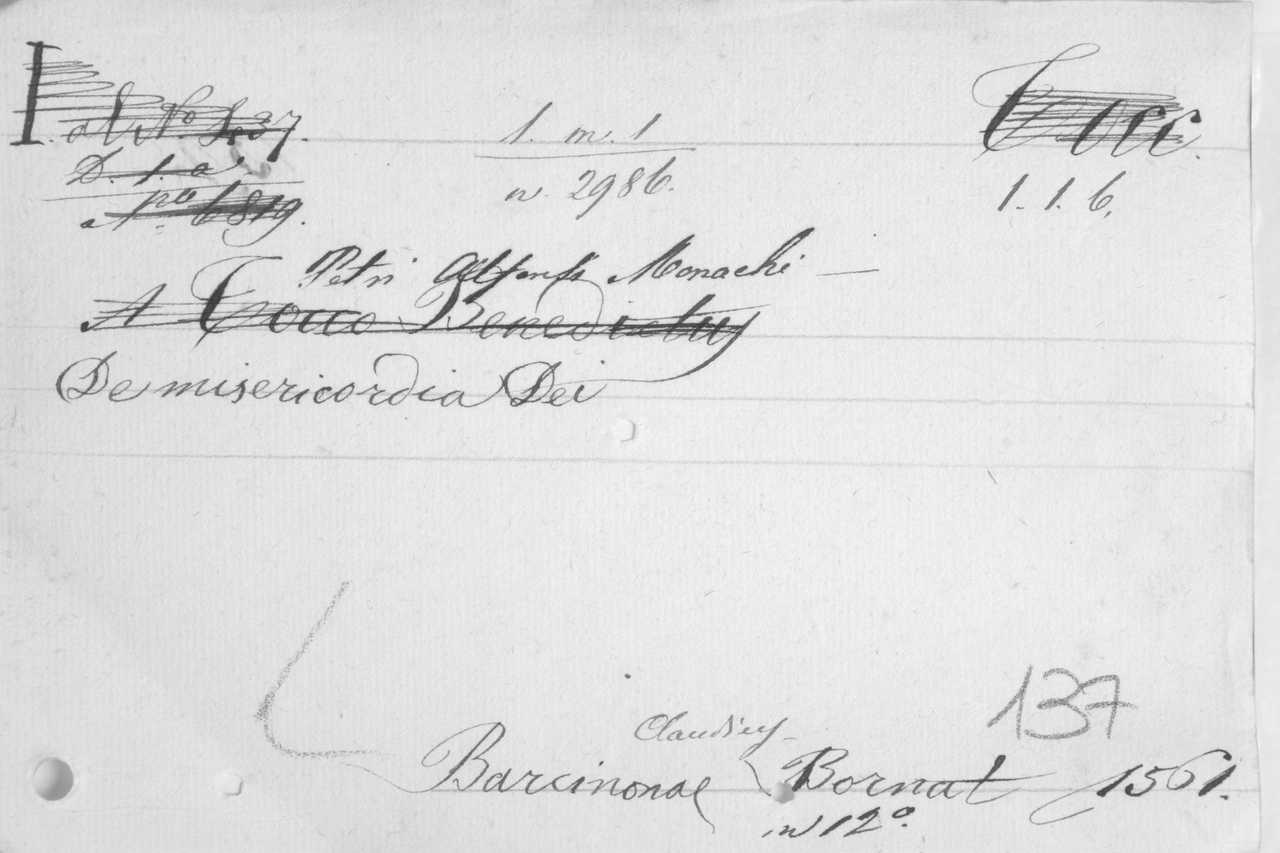 1. m. 1 Tocc.
n. 2986. 1. 1. 6.
D. 1. a
No 6819.
Petri Alfonsi Monachi —
A Tocco Benedictus
De misericordia Dei
137
Claudius
Barcinonae Bornat 1561.
in 12º.